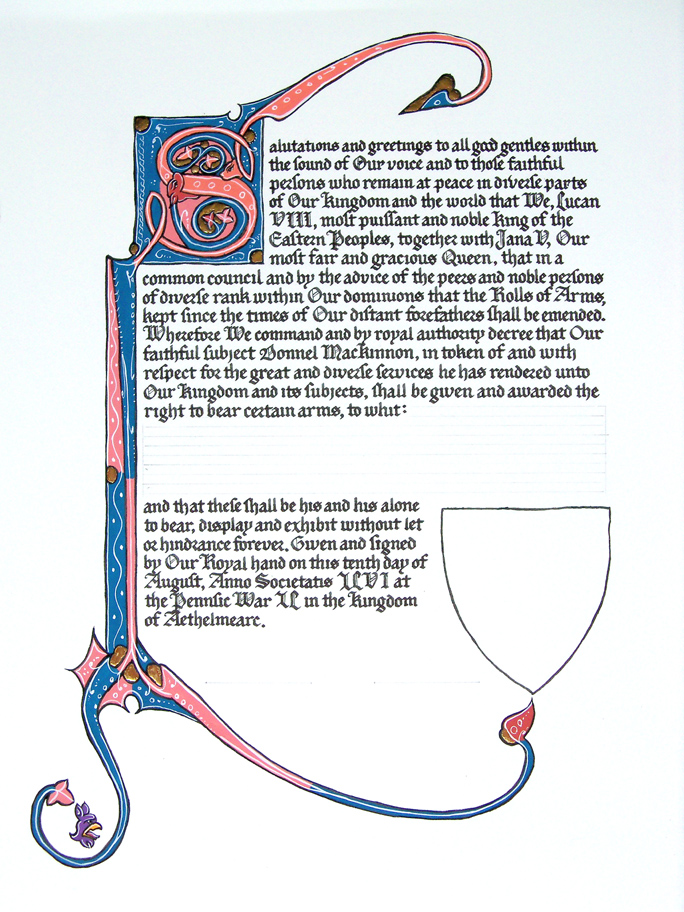 Salutations and greetings to all good gentles within
the sound of Our voice and to those faithful
persons who remain at peace in diverse parts
of Our Kingdom and the world that We, Lucan
VIII, most puissant and noble King of the
Eastern Peoples, together with Jana V, Our
most fair and gracious Queen, that in a
common council and by the advice of the peers and noble persons
of diverse rank within Our dominions that the Rolls of Arms,
kept since the times of Our distant forefathers shall be emended.
Wherefore We command and by royal authority decree that Our
faithful subject Donnel MacKinnon, in token of and with
respect for the great and diverse services he has rendered unto
Our Kingdom and its subjects, shall be given and awarded the
right to bear certain arms, to whit:
and that these shall be his and his alone
to bear, display and exhibit without let
or hindrance forever. Given and signed
by Our Royal hand on this tenth day of
August, Anno Societatis XLVI at
the Pennsic War XL in the Kingdom
of Aethelmearc.